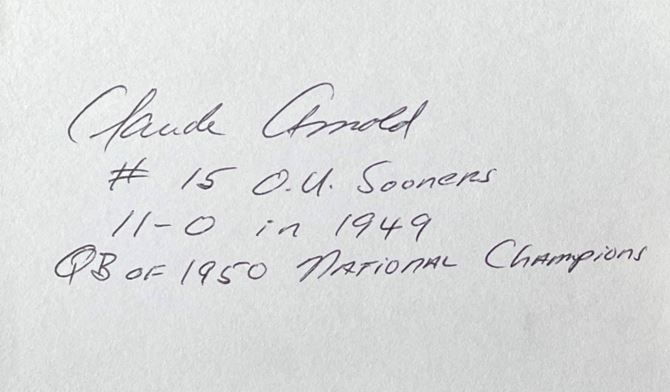 Claude Arnold
# 15 O.U. Sooners
11-0 in 1949
QB OF 1950 NATIONAL CHAMPIONS